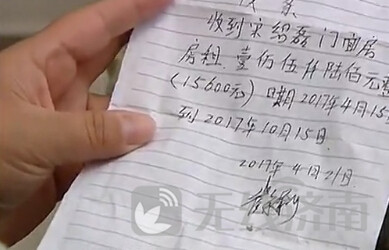 收到宋绍磊门面房
房租壹伍仟陆佰元整
(15600元) 日期2017年4月15日
到2017年10月15日.
2017年4月21日.
无线济南